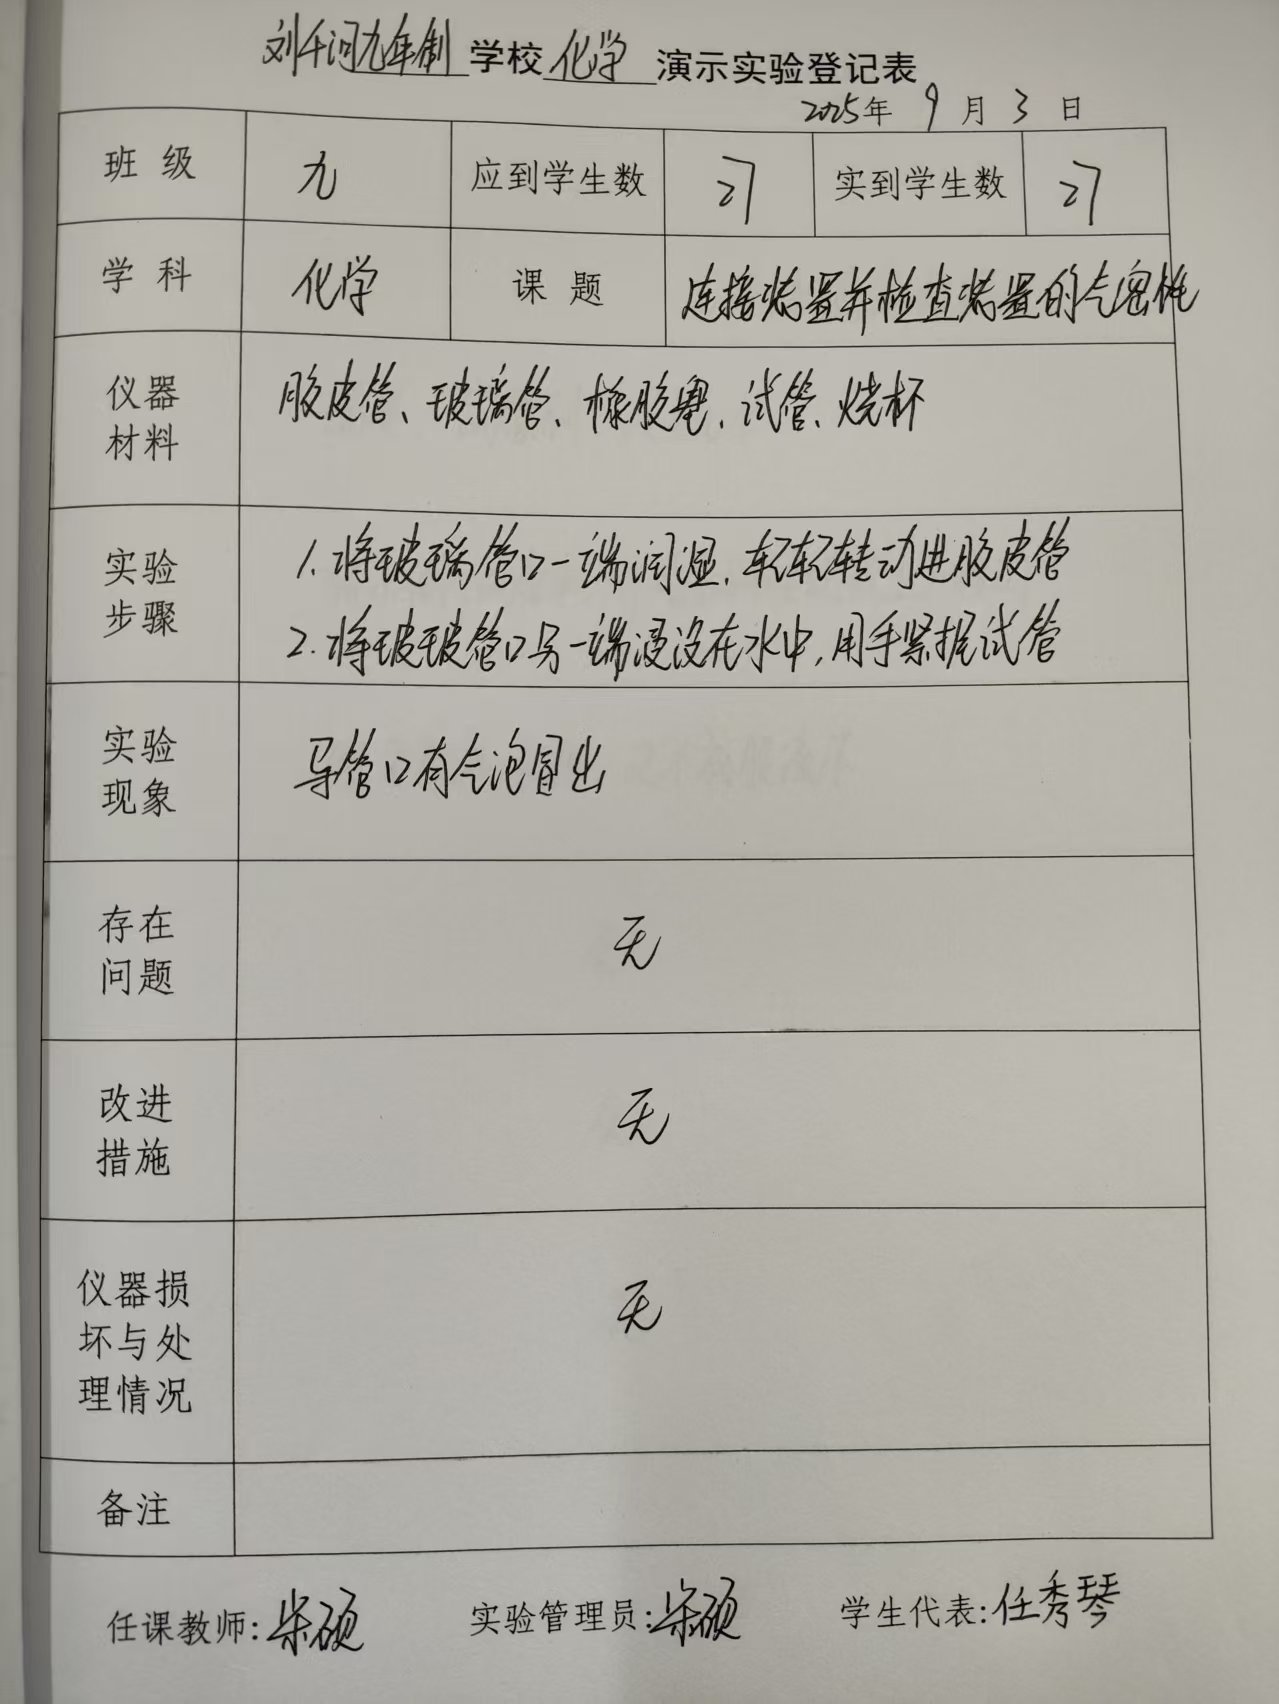 刘千河九年制学校化学演示实验登记表
2025年 9 月 3 日
班 级 九 应到学生数 27 实到学生数 27
学 科 化学 课 题 连接装置并检查装置的气密性
仪器材料 胶皮管、玻璃管、橡胶塞、试管、烧杯
实验步骤 1.将玻璃管口一端润湿,轻轻转动进胶皮管
2.将玻玻管口另一端浸没在水中,用手紧握试管
实验现象 导管口有气泡冒出
存在问题 无
改进措施 无
仪器损坏与处理情况 无
备注
任课教师: 硕 实验管理员: 硕 学生代表:任秀琴